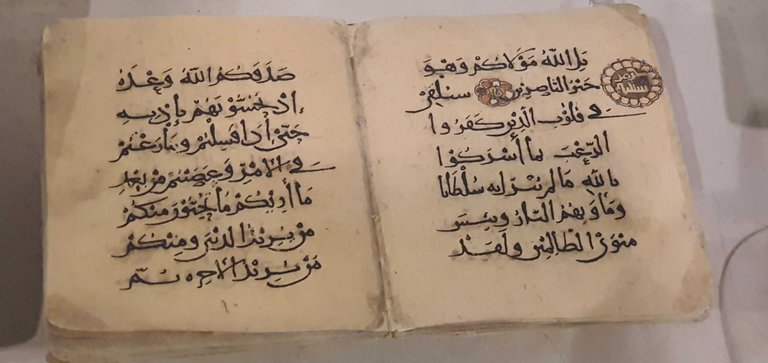 بَلِ اللَّهُ مَوْلَاكُمْ وَهُوَ
خَيْرُ النَّاصِرِينَ سَنُلْقِي
فِي قُلُوبِ الَّذِينَ كَفَرُوا
الرُّعْبَ بِمَا أَشْرَكُوا
بِاللَّهِ مَا لَمْ يُنَزِّلْ بِهِ سُلْطَانًا
وَمَأْوَيهُمُ النَّارُ وَبِئْسَ
مَثْوَى الظَّالِمِينَ وَلَقَدْ
صَدَقَكُمُ اللَّهُ وَعْدَهُ
إِذْ تَحُسُّونَهُمْ بِإِذْنِهِ
حَتَّى إِذَا فَشِلْتُمْ وَتَنَازَعْتُمْ
فِي الْأَمْرِ وَعَصَيْتُمْ مِنْ بَعْدِ
مَا أَرَيكُمْ مَا تُحِبُّونَ مِنْكُمْ
مَنْ يُرِيدُ الدُّنْيَا وَمِنْكُمْ
مَنْ يُرِيدُ الْآخِرَةَ ثُمَّ